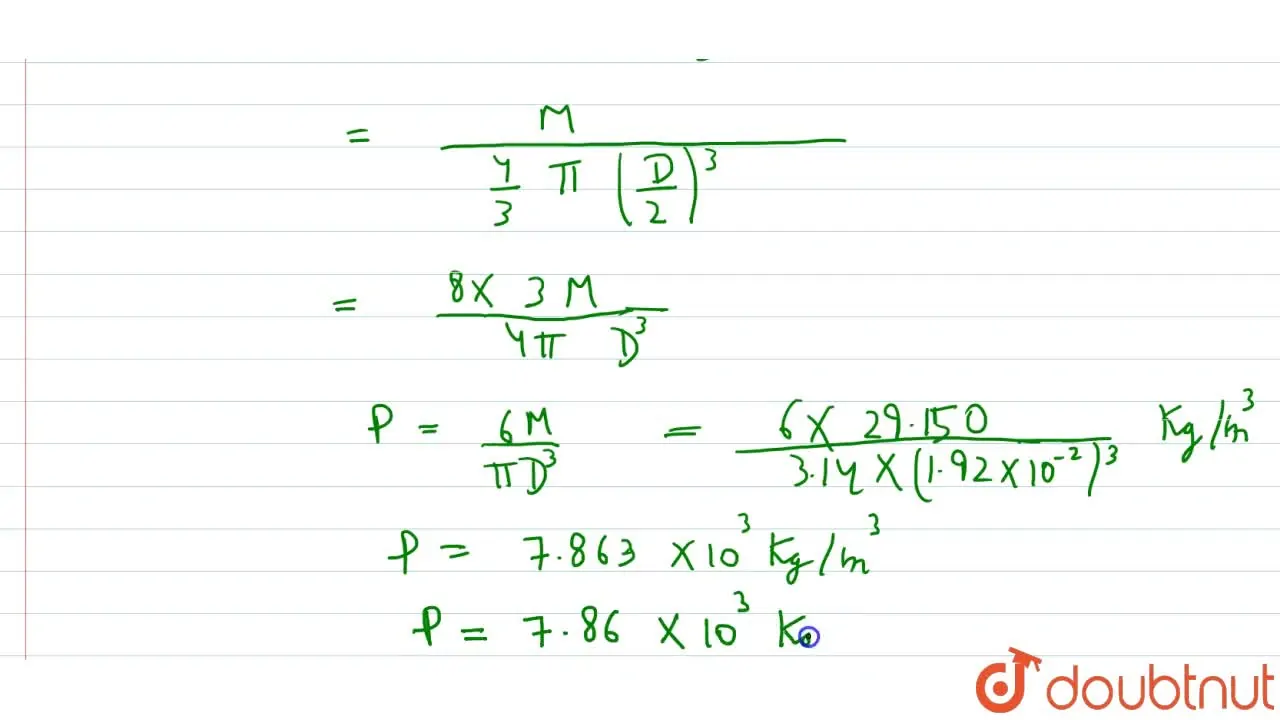 = M / (4/3 π (D/2)³)
= 8 X 3 M / (4π D³)
ρ = 6 M / (π D³) = 6 X 29.150 / (3.14 X (1.92 X 10⁻²)³) Kg/m³
ρ = 7.863 X 10³ Kg/m³
ρ = 7.86 X 10³ K
doubtnut